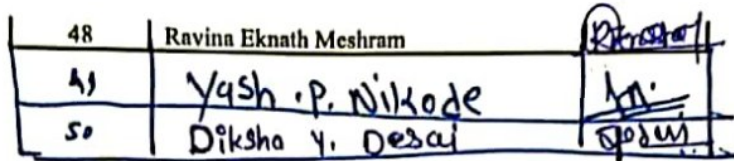 48 Ravina Eknath Meshram
49 Yash .P. Nikode
50 Diksha Y. Desai Desai